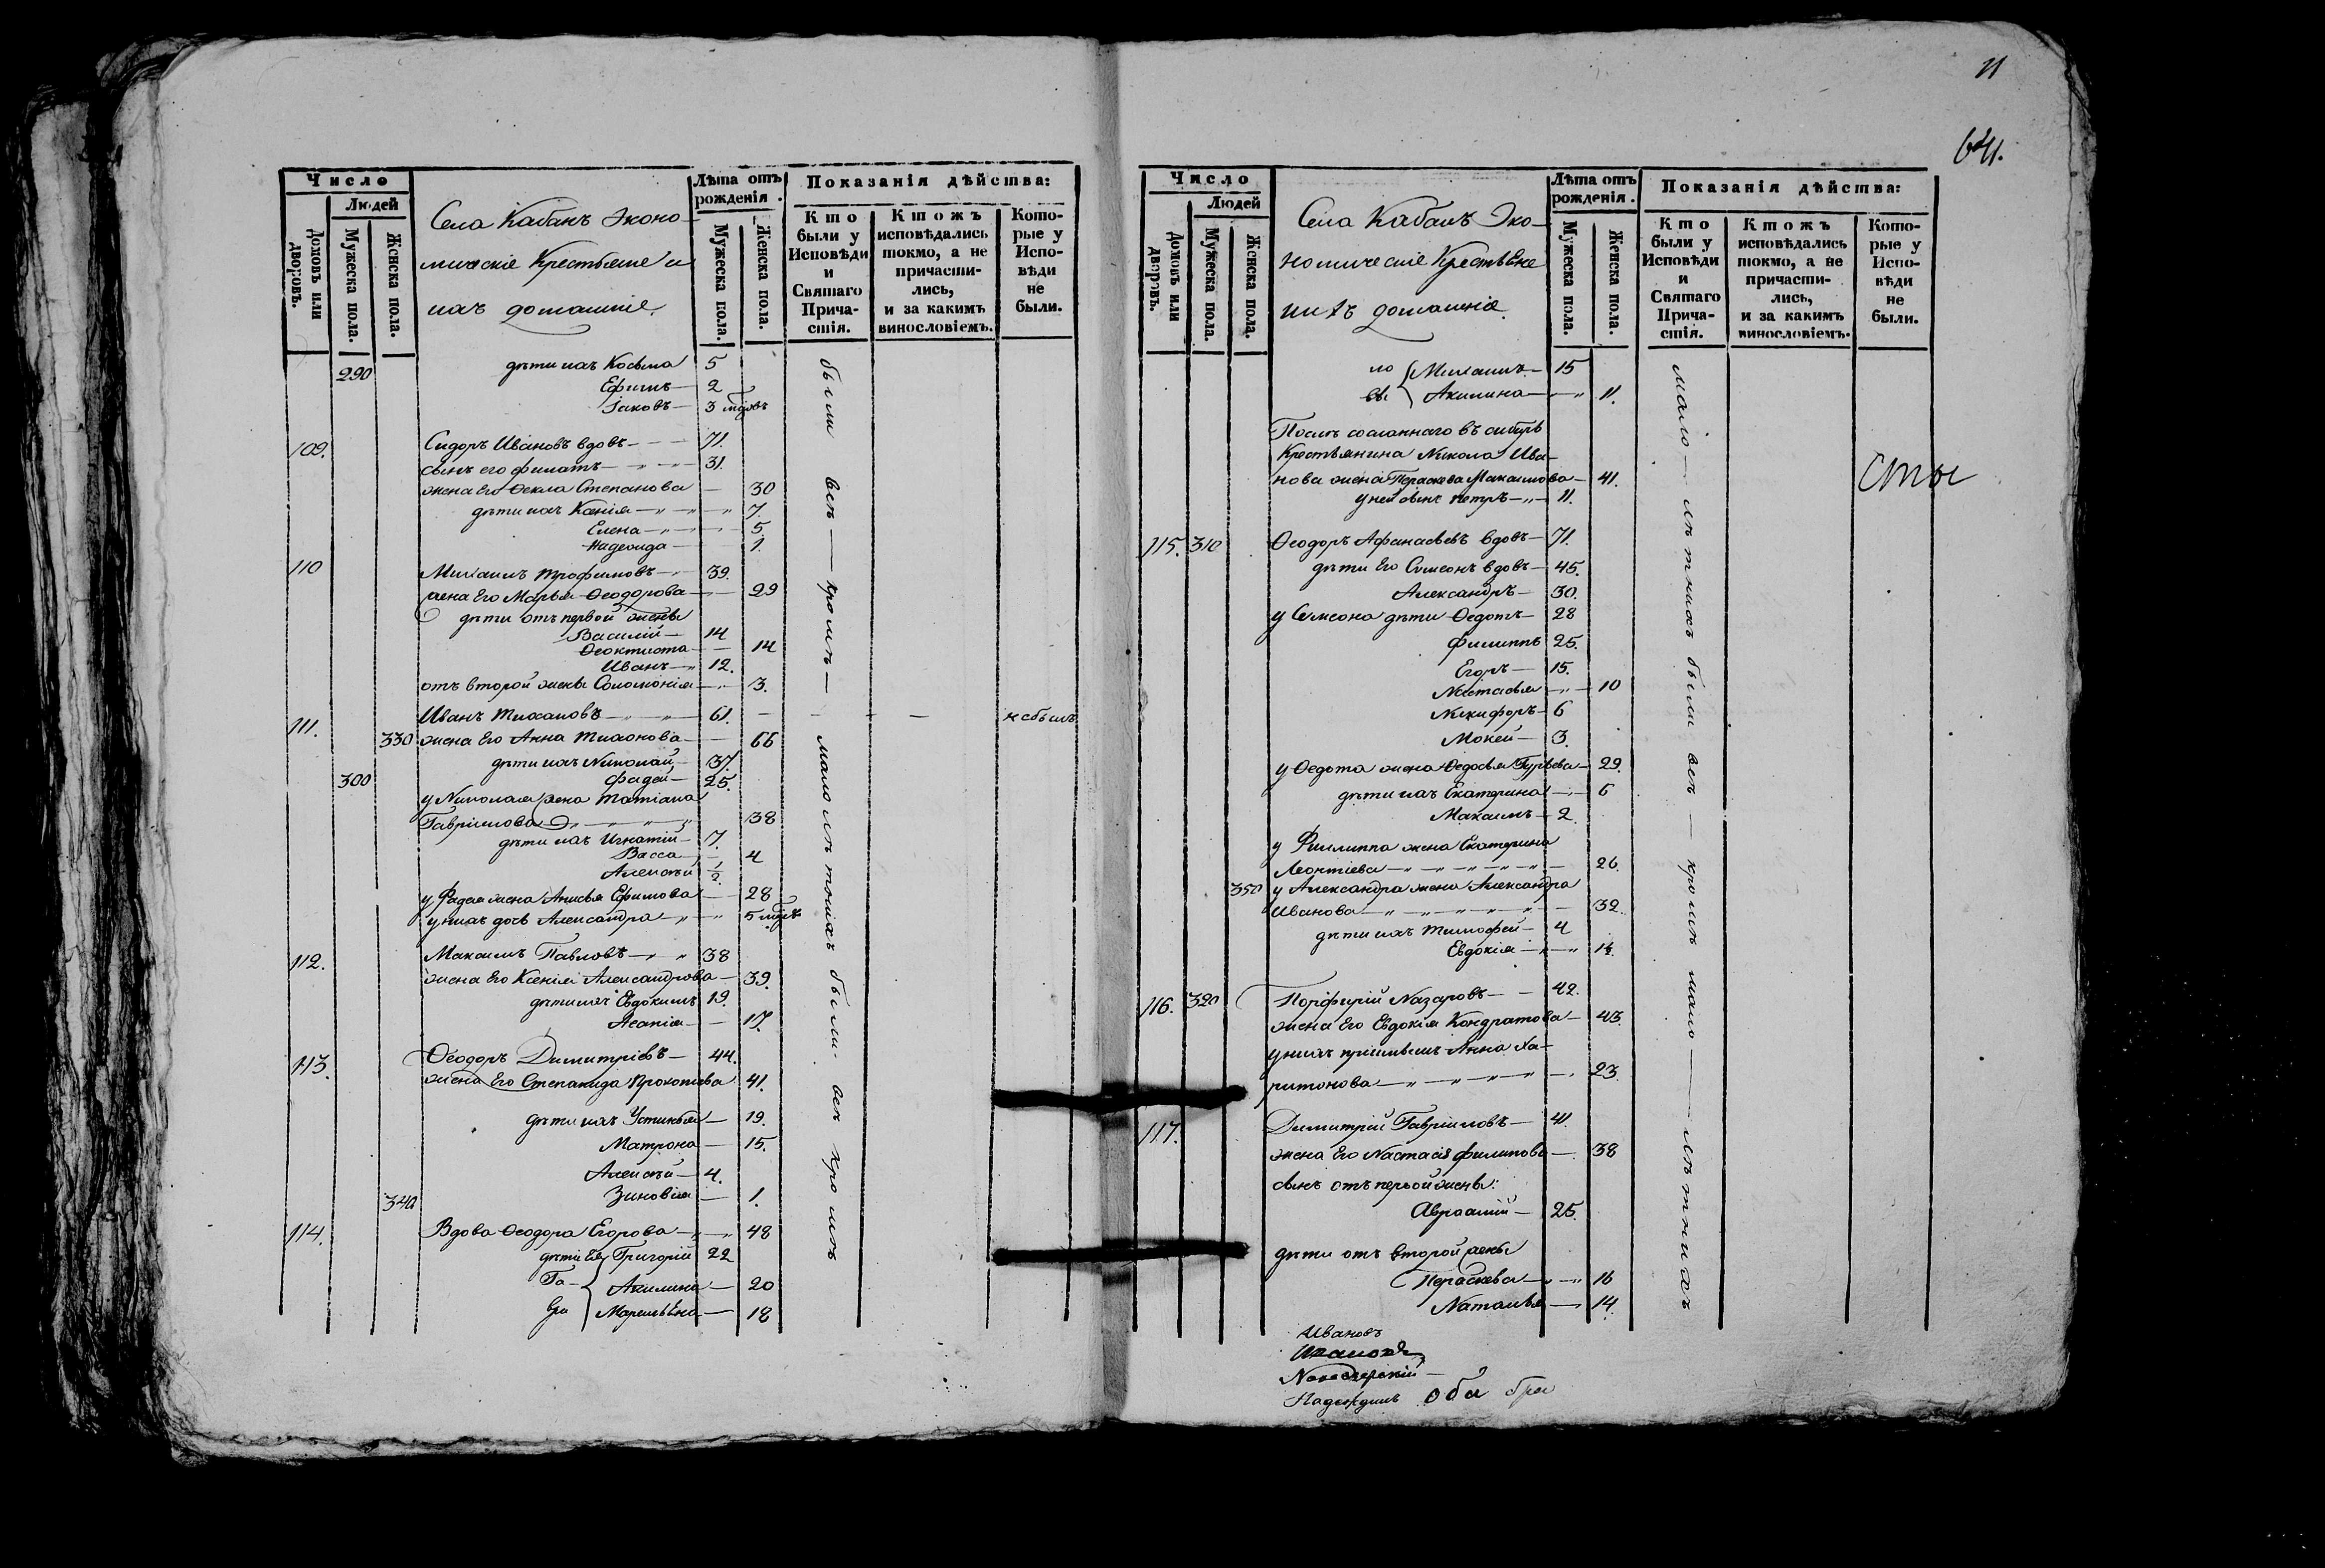 11
641.
Число
Людей
Домовъ или дворовъ.
Мужеска пола.
Женска пола.
Села Кабанъ Эконо-
мическіе Крестьяне и
ихъ домашніе.
Лѣта отъ рожденія.
Мужеска пола.
Женска пола.
Показанія дѣйства:
Кто были у Исповѣди и Святаго Прича-стія.
Ктожъ исповѣдались токмо, а не причасти-лись, и за какимъ винословіемъ.
Кото-рые у Испо-вѣди не были.
290 дѣти ихъ Косьма 5
Ефимъ 2
Іаковъ 3 мцовъ
109. Сидоръ Ивановъ вдовъ 71.
сынъ его Филатъ 31.
жена Его Ѳекла Степанова 30
дѣти ихъ Ксенія 7.
Елена 5
Надежда 1.
110 Михаилъ Трофимовъ 39.
жена Его Марья Ѳеодорова 29
дѣти отъ первой жены
Василій 14
Ѳеоктиста 14
Иванъ 12.
отъ второй жены Соломонія 3.
111. Иванъ Тихановъ 61. не былъ
330 жена Его Анна Тихонова 66
дѣти ихъ Николай 37.
300 Фадей 25.
у Николая жена Татіана
Гавріилова 38
дѣти ихъ Игнатій 7.
Васса 4
Алексѣй ½
у Фадея жена Анисья Ефимова 28
у нихъ дочь Александра 5 мцъ
112. Максимъ Павловъ 38
жена Его Ксенія Александрова 39.
дѣти ихъ Евдокимъ 19.
Агапія 17.
113. Ѳеодоръ Димитріевъ 44.
жена Его Степанида Прокопьева 41.
дѣти ихъ Устинья 19.
Матрона 15.
Алексѣй 4.
340 Зиновія 1.
114. Вдова Ѳеодора Егорова 48
дѣти Ея Григорій 22
Акилина 20
Маремьяна 18
были всѣ кромѣ малолѣтнихъ были всѣ кромѣ
Число
Людей
Домовъ или дворовъ.
Мужеска пола.
Женска пола.
Села Кабанъ Эко-
номическіе Крестьяне
и ихъ домашніе
Лѣта отъ рожденія.
Мужеска пола.
Женска пола.
Показанія дѣйства:
Кто были у Исповѣди и Святаго Прича-стія.
Ктожъ исповѣдались токмо, а не причасти-лись, и за какимъ винословіемъ.
Кото-рые у Испо-вѣди не были.
Михаилъ 15
Акилина 11.
Послѣ сосланнаго въ сибирь
Крестьянина Никола Ива-
нова жена Параскева Максимова 41.
у ней сынъ Петръ 11.
115. 310 Ѳеодоръ Афанасьевъ вдовъ 71.
дѣти Его Симеонъ вдовъ 45.
Александръ 30.
у Семеона дѣти Ѳедотъ 28
Филиппъ 25.
Егоръ 15.
Настасья 10
Никифоръ 6
Мокей 3.
у Ѳедота жена Ѳедосья Гурьева 29.
дѣти ихъ Екатерина 6
Максимъ 2.
у Филиппа жена Екатерина
Леонтіева 26.
350 у Александра жена Александра
Иванова 32.
дѣти ихъ Тимофей 4
Евдокія 14.
116. 320 Порфирій Назаровъ 42.
жена Его Евдокія Кондратова 43.
у нихъ пріимышъ Анна Ха-
ритонова 23.
117. Димитрій Гавріиловъ 41.
жена Его Настасія Филипова 38
сынъ отъ первой жены:
Авраамій 25.
дѣти отъ второй жены
Параскева 16
Наталья 14.
малолѣтнихъ были всѣ кромѣ малолѣтнихъ
сты
Ивановъ
Надеждинъ оба